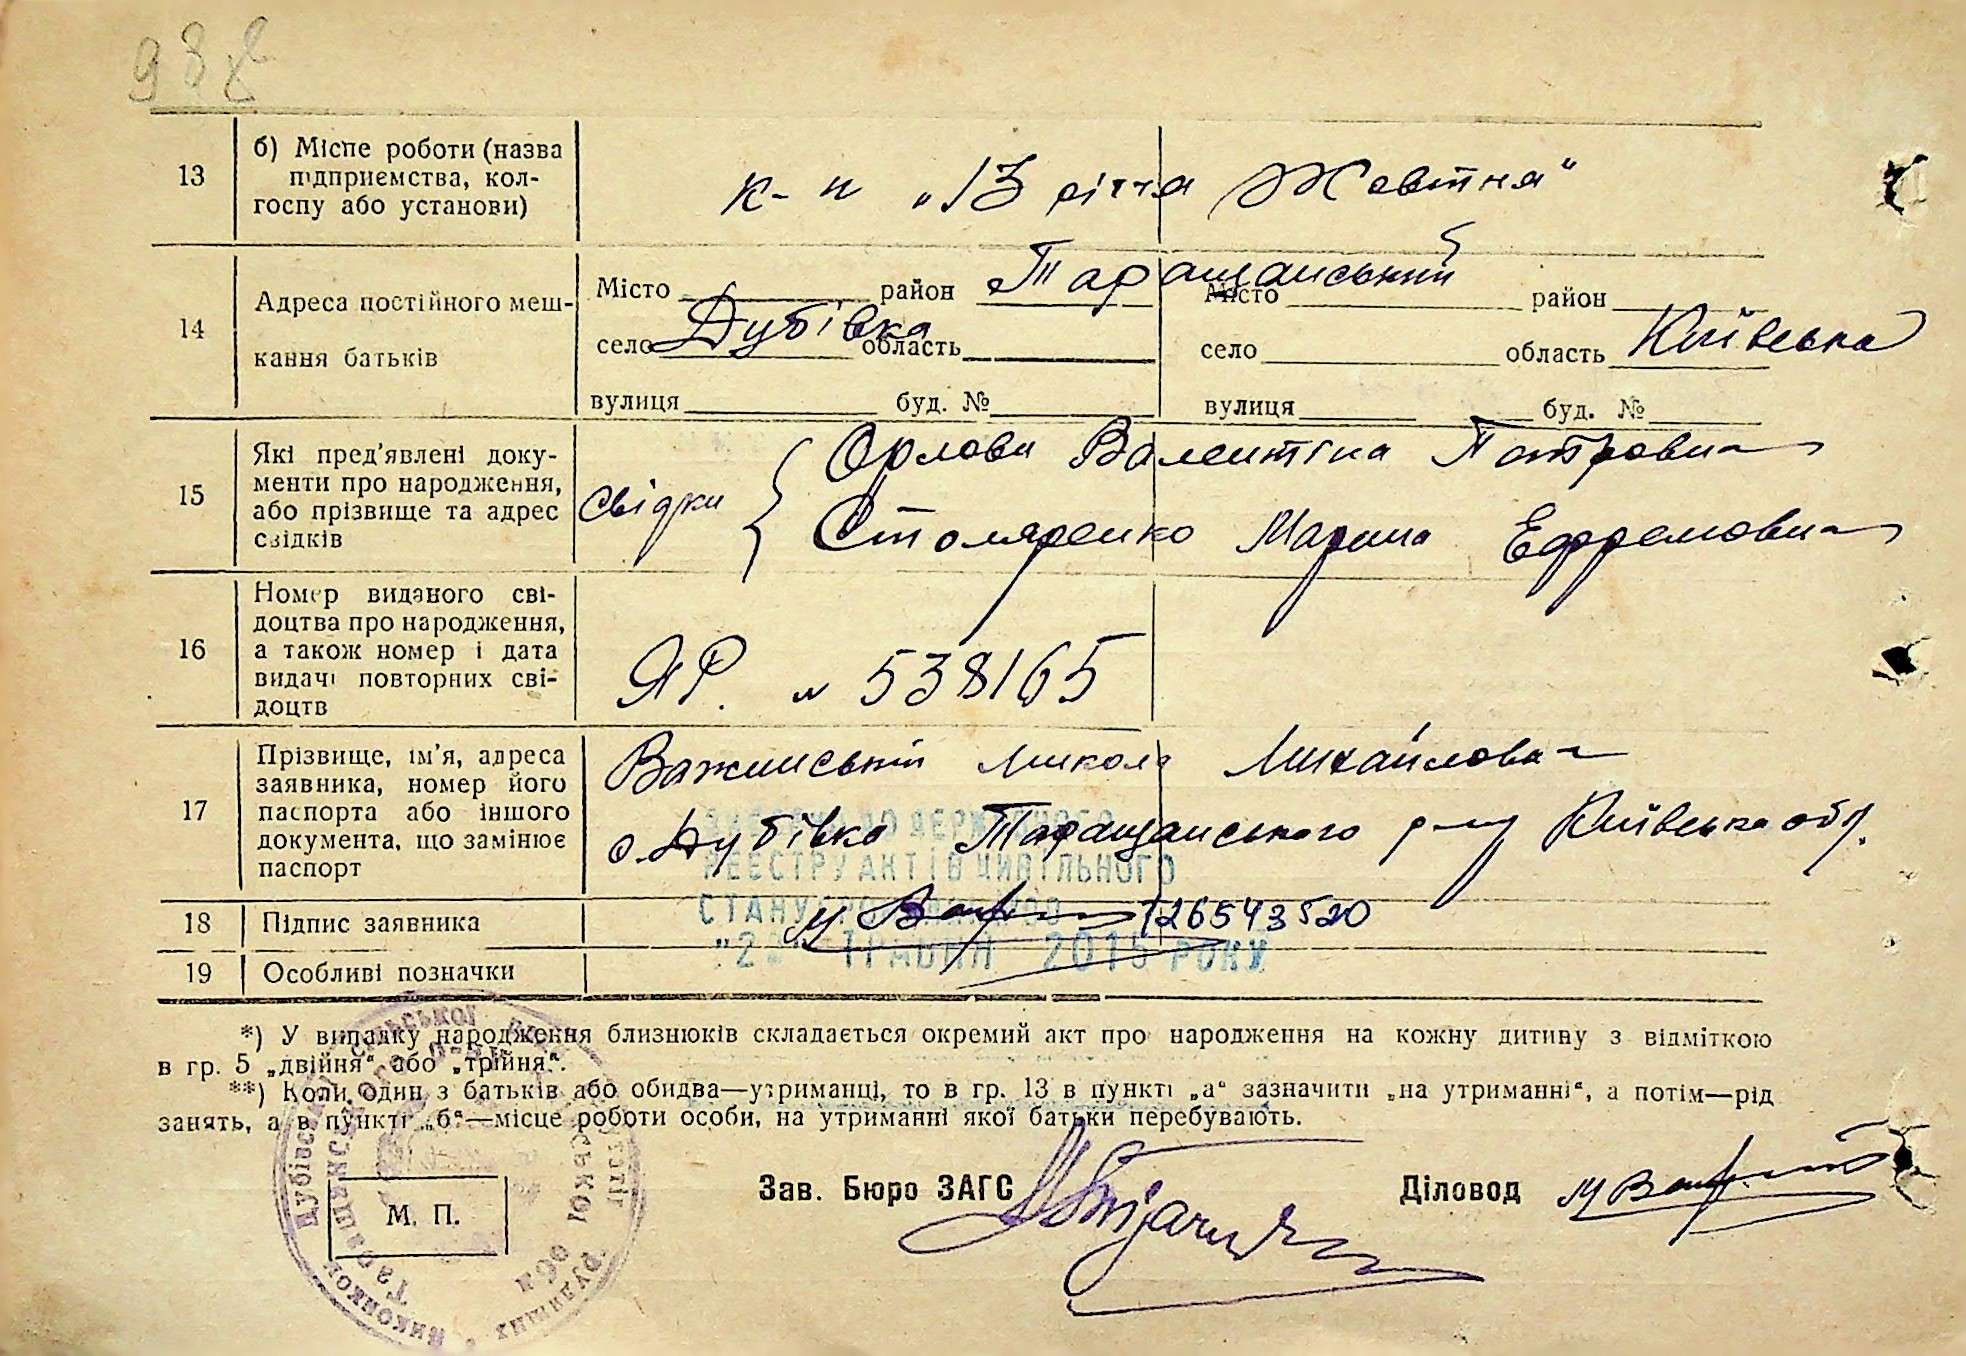 98
13
б) Місце роботи (назва
підприємства, кол-
госпу або установи)
к-п „13 річчя Жовтня“
14
Адреса постійного меш-
кання батьків
Місто район Таращанський
Місто район
село Дубівка область
село область Київська
вулиця буд. №
вулиця буд. №
15
Які пред'явлені доку-
менти про народження,
або прізвище та адрес
свідків
Свідки
Орлова Валентіна Петровна
Столяренко Марина Ефремовна
16
Номер виданого сві-
доцтва про народження,
а також номер і дата
видачі повторних сві-
доцтв
ЯР. № 538165
17
Прізвище, ім'я, адреса
заявника, номер його
паспорта або іншого
документа, що замінює
паспорт
Важинський Микола Михайлович
с. Дубівка Таращанського р-ну Київська обл.
ДЕРЖАВНОГО
РЕЄСТРУ АКТІВ ЦИВІЛЬНОГО
СТАНУ
ТРАВНЯ 2015 РОКУ
18
Підпис заявника
126543520
19
Особливі позначки
*) У випадку народження близнюків складається окремий акт про народження на кожну дитину з відміткою
в гр. 5 „двійня“ або „трійня“.
**) Коли один з батьків або обидва—утриманці, то в гр. 13 в пункті „а“ зазначити „на утриманні“, а потім—рід
занять, а в пункті „б“—місце роботи особи, на утриманні якої батьки перебувають.
Зав. Бюро ЗАГС
Діловод
М. П.